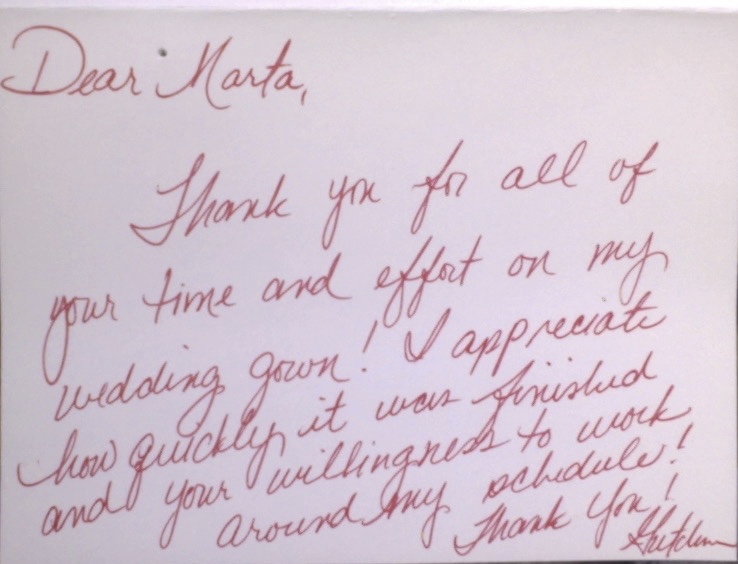 Dear Marta,
Thank you for all of
your time and effort on my
wedding gown! I appreciate
how quickly it was finished
and your willingness to work
around my schedule!
Thank You!
Gretchen